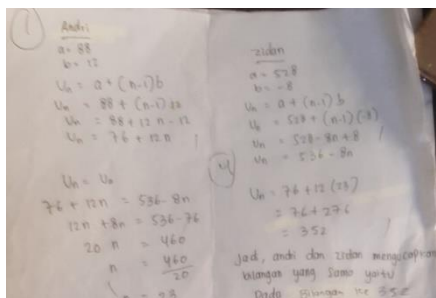 1
Andri
a = 88
b = 12
Un = a + (n-1) b
Un = 88 + (n-1) 12
Un = 88 + 12 n - 12
Un = 76 + 12n
Un = Un
76 + 12n = 536 - 8n
12n + 8n = 536 - 76
20 n = 460
n = 460
20
= 23
Zidan
a = 528
b = -8
Un = a + (n-1) b
Un = 528 + (n-1) (-8)
Un = 528 - 8n + 8
Un = 536 - 8n
Un = 76 + 12 (23)
= 76 + 276
= 352
Jadi, andri dan zidan mengucapkan
bilangan yang sama yaitu
Pada Bilangan ke 352